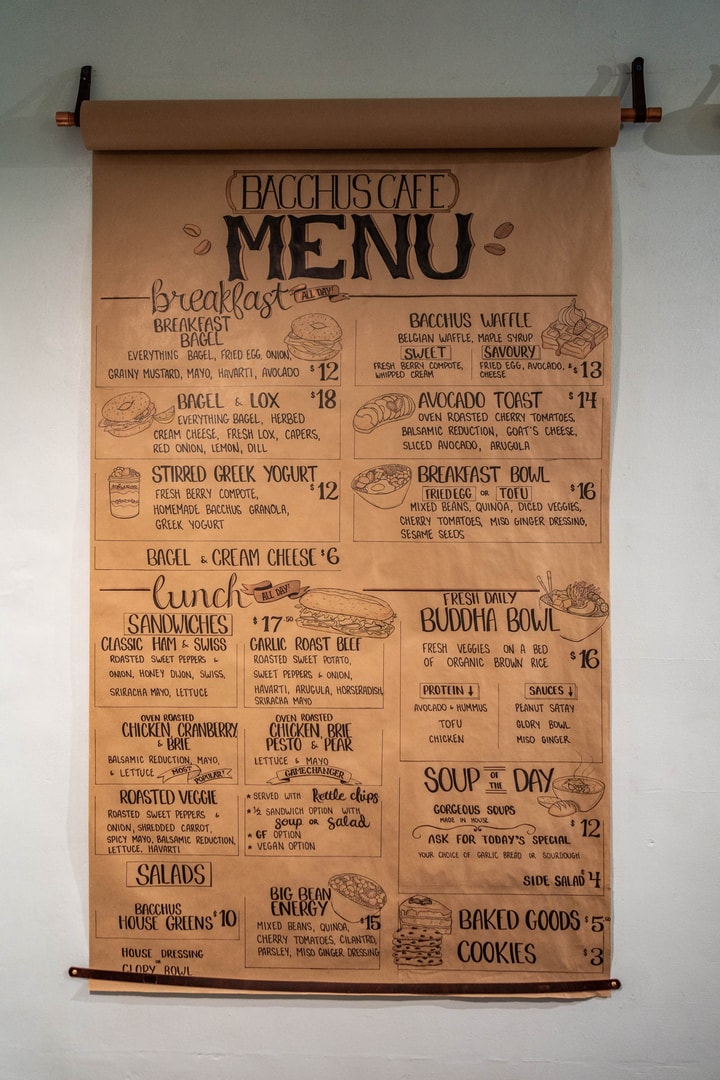 BACCHUS CAFE
MENU
breakfast ALL DAY!
BREAKFAST
BAGEL
EVERYTHING BAGEL, FRIED EGG, ONION,
GRAINY MUSTARD, MAYO, HAVARTI, AVOCADO $12
BACCHUS WAFFLE
BELGIAN WAFFLE, MAPLE SYRUP
SWEET
FRESH BERRY COMPOTE,
WHIPPED CREAM
SAVOURY
FRIED EGG, AVOCADO, &
CHEESE
$13
BAGEL & LOX $18
EVERYTHING BAGEL, HERBED
CREAM CHEESE, FRESH LOX, CAPERS,
RED ONION, LEMON, DILL
AVOCADO TOAST $14
OVEN ROASTED CHERRY TOMATOES,
BALSAMIC REDUCTION, GOAT'S CHEESE,
SLICED AVOCADO, ARUGULA
STIRRED GREEK YOGURT
$12
FRESH BERRY COMPOTE,
HOMEMADE BACCHUS GRANOLA,
GREEK YOGURT
BREAKFAST BOWL
FRIED EGG OR TOFU $16
MIXED BEANS, QUINOA, DICED VEGGIES,
CHERRY TOMATOES, MISO GINGER DRESSING,
SESAME SEEDS
BAGEL & CREAM CHEESE $6
lunch ALL DAY!
SANDWICHES $17.50
CLASSIC HAM & SWISS
ROASTED SWEET PEPPERS &
ONION, HONEY DIJON, SWISS,
SRIRACHA MAYO, LETTUCE
GARLIC ROAST BEEF
ROASTED SWEET POTATO,
SWEET PEPPERS & ONION,
HAVARTI, ARUGULA, HORSERADISH,
SRIRACHA MAYO
OVEN ROASTED
CHICKEN, CRANBERRY
& BRIE
BALSAMIC REDUCTION, MAYO,
& LETTUCE MOST POPULAR!
OVEN ROASTED
CHICKEN, BRIE
PESTO & PEAR
LETTUCE & MAYO
GAMECHANGER
ROASTED VEGGIE
ROASTED SWEET PEPPERS &
ONION, SHREDDED CARROT,
SPICY MAYO, BALSAMIC REDUCTION,
LETTUCE, HAVARTI
* SERVED WITH Kettle chips
* ½ SANDWICH OPTION WITH
soup OR salad
* GF OPTION
* VEGAN OPTION
SALADS
BACCHUS
HOUSE GREENS $10
HOUSE DRESSING
OR
GLORY BOWL
BIG BEAN
ENERGY
$15
MIXED BEANS, QUINOA,
CHERRY TOMATOES, CILANTRO,
PARSLEY, MISO GINGER DRESSING
FRESH DAILY
BUDDHA BOWL
FRESH VEGGIES ON A BED
OF ORGANIC BROWN RICE $16
PROTEIN ↓
AVOCADO & HUMMUS
TOFU
CHICKEN
SAUCES ↓
PEANUT SATAY
GLORY BOWL
MISO GINGER
SOUP OF THE DAY
GORGEOUS SOUPS
MADE IN HOUSE
$12
ASK FOR TODAY'S SPECIAL
YOUR CHOICE OF GARLIC BREAD OR SOURDOUGH
SIDE SALAD $4
BAKED GOODS $5.50
COOKIES $3